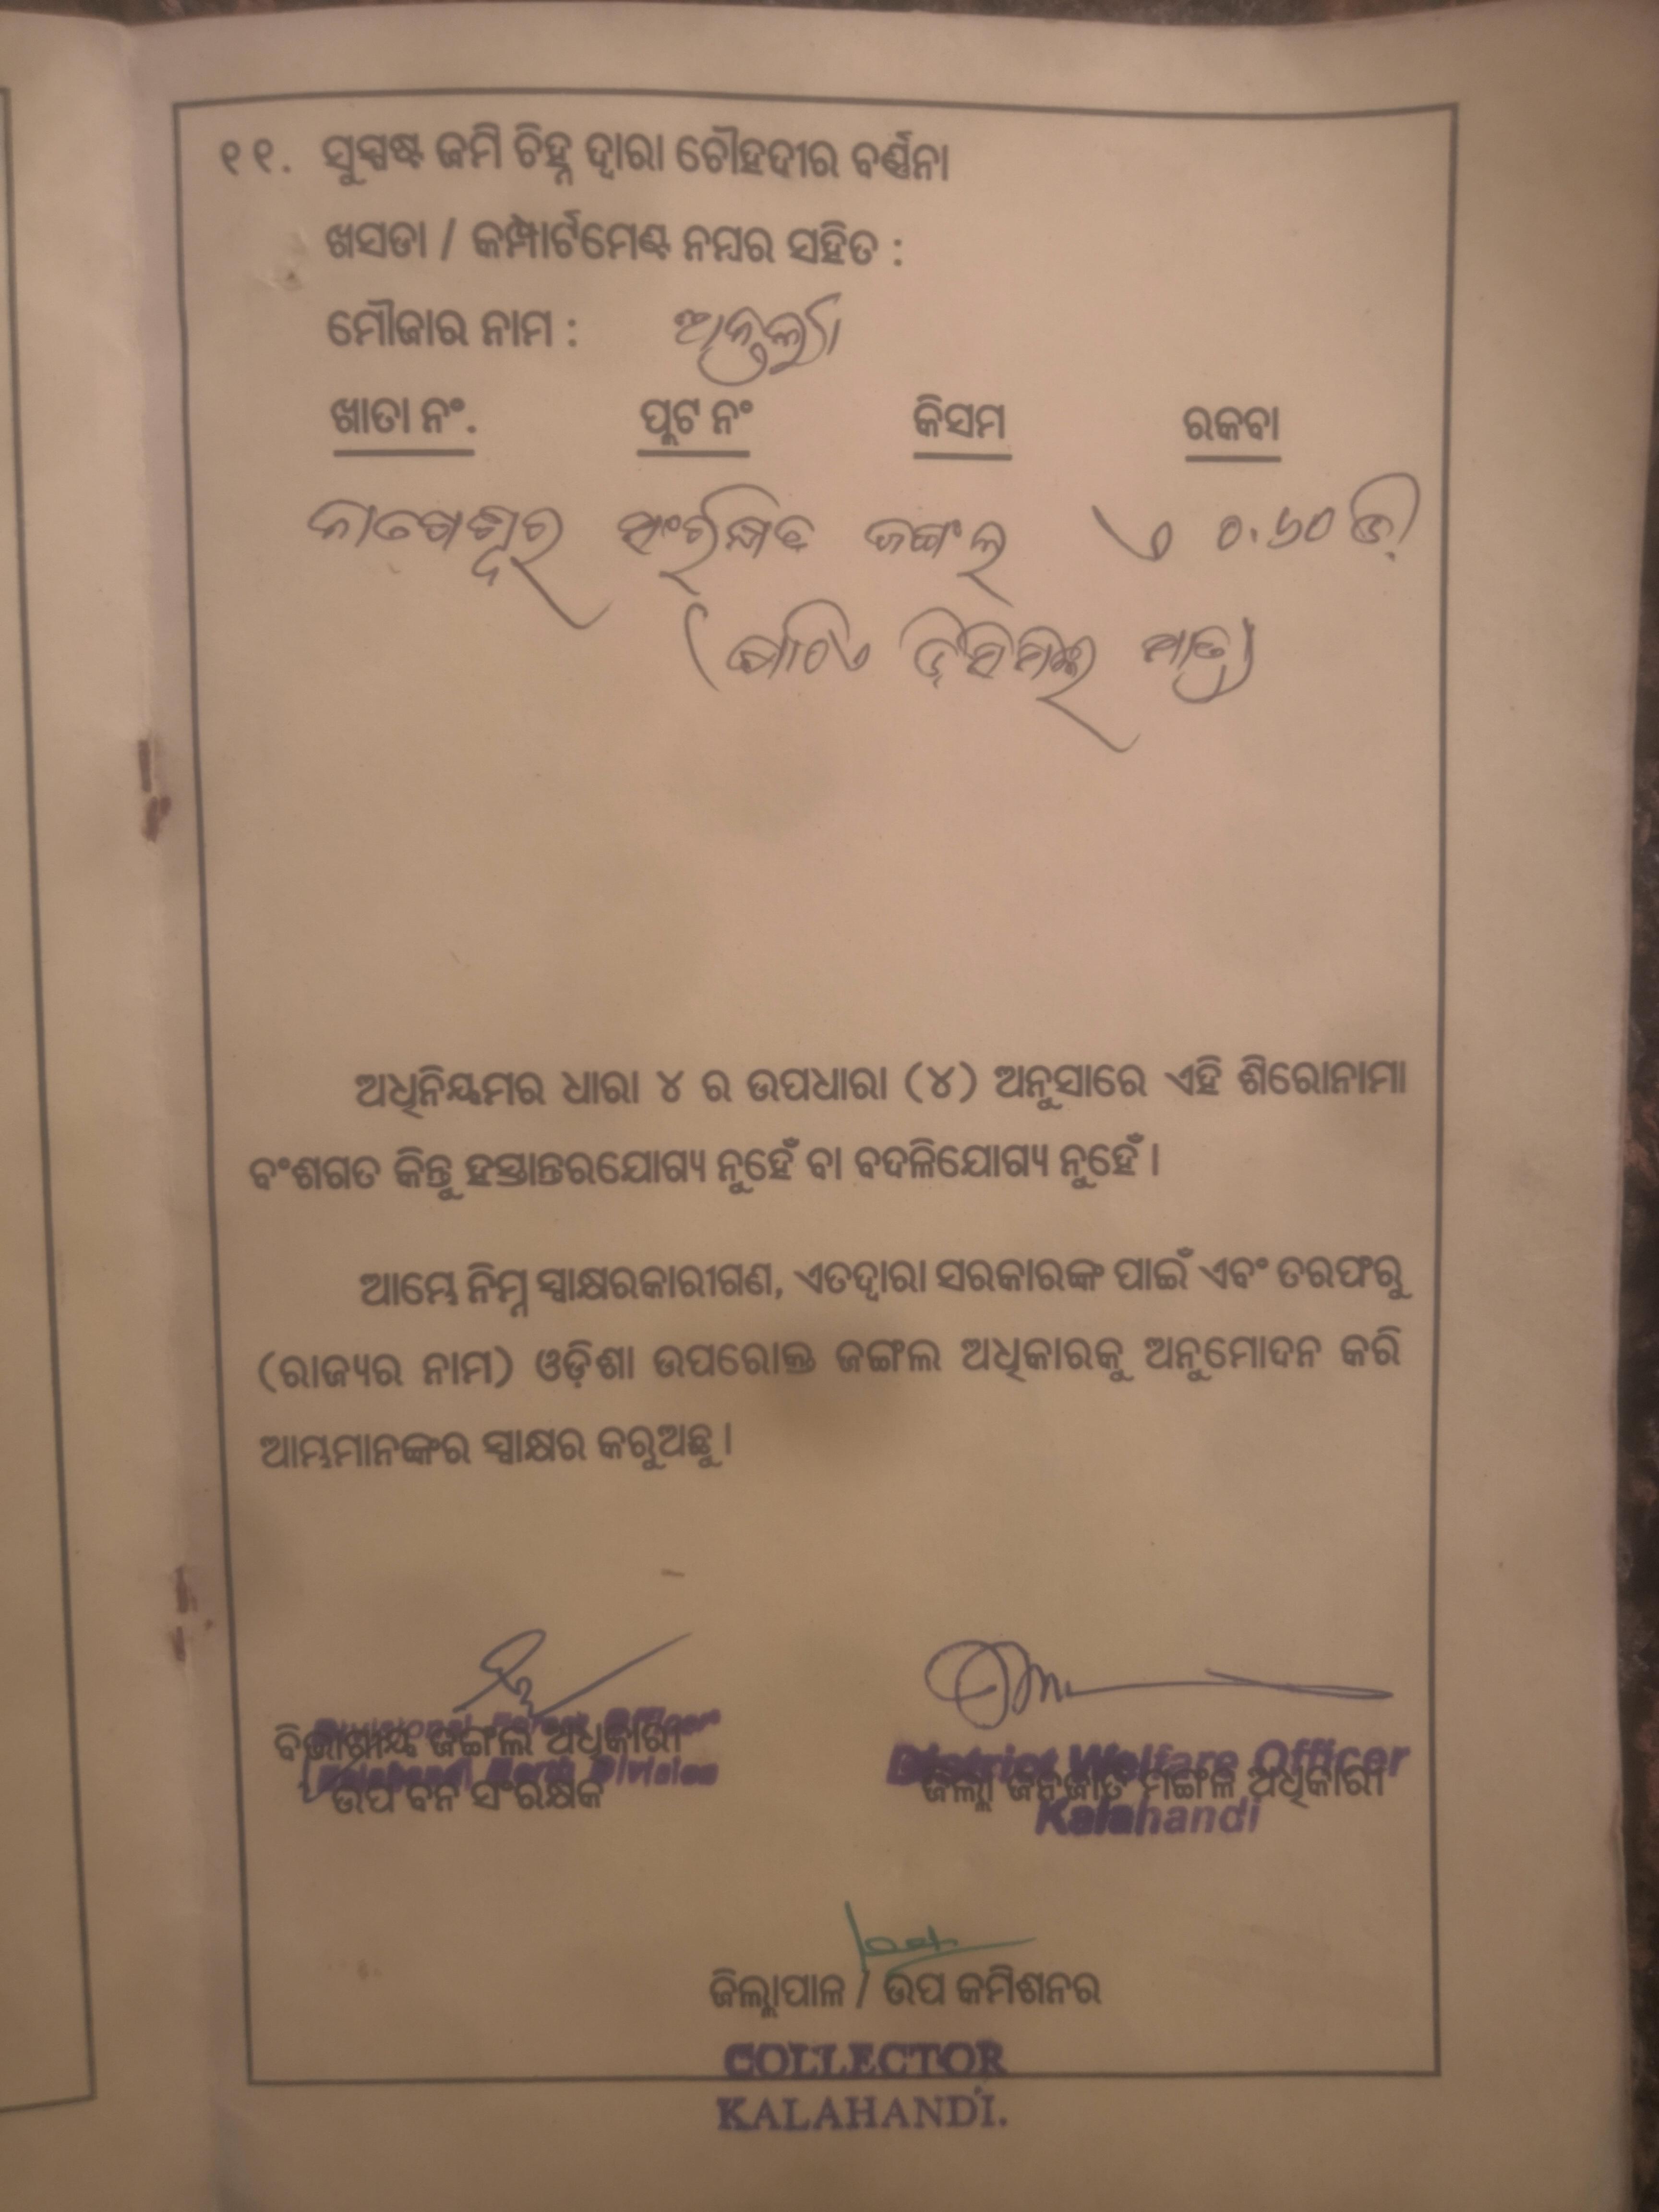 ୧୧. ସୁସ୍ପଷ୍ଟ ଜମି ଚିହ୍ନ ଦ୍ୱାରା ଚୌହଦୀର ବର୍ଣ୍ଣନା
ଖସଡା / କମ୍ପାର୍ଟମେଣ୍ଟ ନମ୍ବର ସହିତ :
ମୌଜାର ନାମ :
ଖାତା ନଂ. ପ୍ଲଟ ନଂ କିସମ ରକବା
ଜଙ୍ଗଲ ଏ ୦.୬୦ ଡି
( ଷାଠିଏ ଡିସମିଲ ମାତ୍ର)
ଅଧିନିୟମର ଧାରା ୪ ର ଉପଧାରା (୪) ଅନୁସାରେ ଏହି ଶିରୋନାମା
ବଂଶଗତ କିନ୍ତୁ ହସ୍ତାନ୍ତରଯୋଗ୍ୟ ନୁହେଁ ବା ବଦଳିଯୋଗ୍ୟ ନୁହେଁ ।
ଆମ୍ଭେ ନିମ୍ନ ସ୍ୱାକ୍ଷରକାରୀଗଣ, ଏତଦ୍ୱାରା ସରକାରଙ୍କ ପାଇଁ ଏବଂ ତରଫରୁ
(ରାଜ୍ୟର ନାମ) ଓଡ଼ିଶା ଉପରୋକ୍ତ ଜଙ୍ଗଲ ଅଧିକାରକୁ ଅନୁମୋଦନ କରି
ଆମ୍ଭମାନଙ୍କର ସ୍ୱାକ୍ଷର କରୁଅଛୁ ।
Divisional Forest Officer
ବିଭାଗୀୟ ଜଙ୍ଗଲ ଅଧିକାରୀ
Kalahandi North Division
ଉପ ବନ ସଂରକ୍ଷକ
District Welfare Officer
ଜିଲ୍ଲା ଜନଜାତି ମଙ୍ଗଳ ଅଧିକାରୀ
Kalahandi
ଜିଲ୍ଲାପାଳ / ଉପ କମିଶନର
COLLECTOR
KALAHANDI.